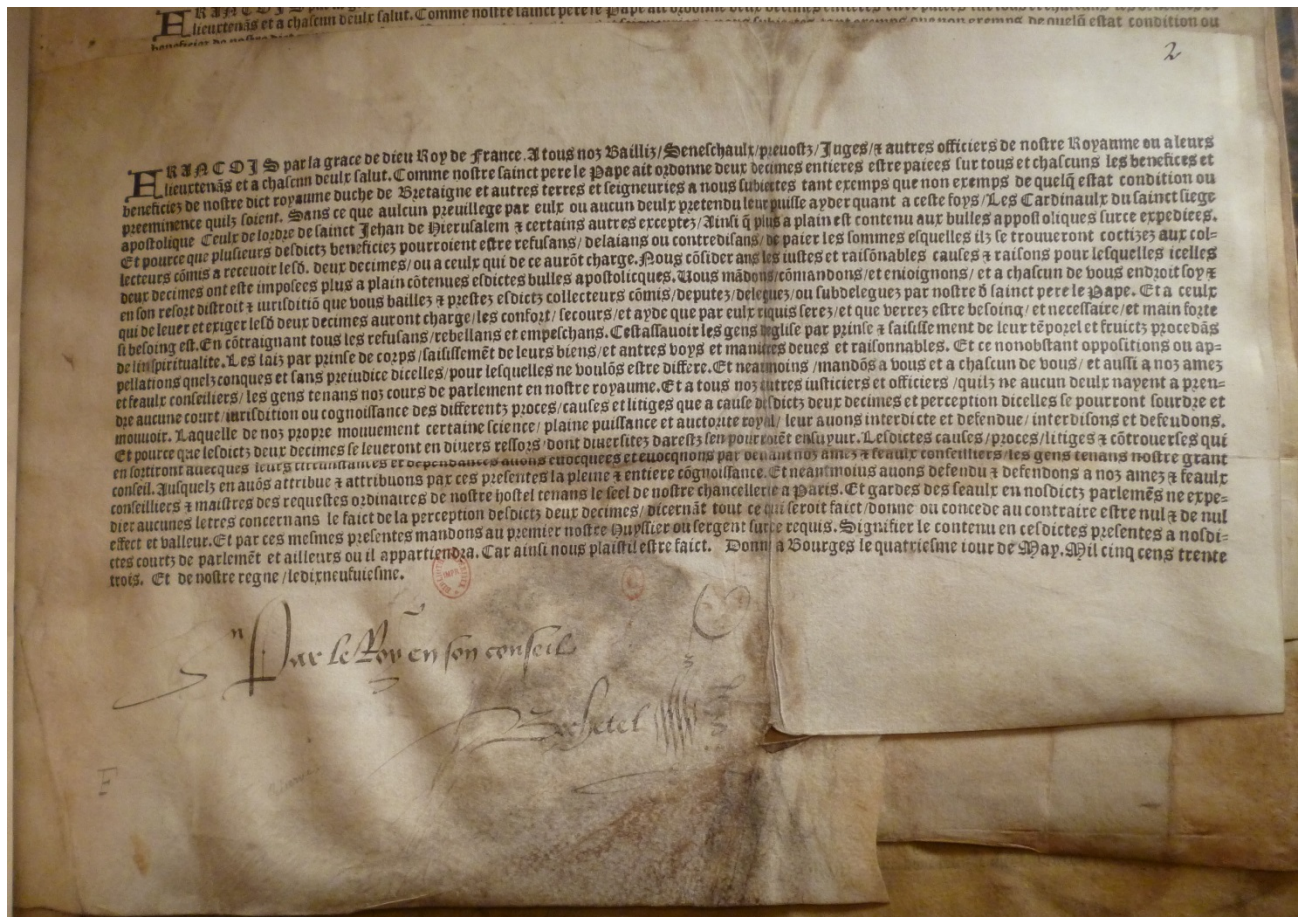 lieurtenãs et a chascun deulx salut. Comme nostre sainct pere le Pape ait ordonne deux decimes entieres
2
FRANCOIS par la grace de dieu Roy de France. A tous noz Bailliz/Seneschaulx/preuostz/Juges/⁊ autres officiers de nostre Royaume ou a leurs
lieurtenãs et a chascun deulx salut. Comme nostre sainct pere le Pape ait ordonne deux decimes entieres estre paiees sur tous et chascuns les benefices et
beneficiez de nostre dict royaume duche de Bretaigne et autres terres et seigneuries a nous subiectes tant exemps que non exemps de quelq̃ estat condition ou
preeminence quilz soient. Sans ce que aulcun preuillege par eulx ou aucun deulx pretendu leur puisse ayder quant a ceste foys/Les Cardinaulx du sainct siege
apostolique Ceulx de lordre de sainct Jehan de Hierusalem ⁊ certains autres exceptez/Ainsi q̃ plus a plain est contenu aux bulles appostoliques surce expediees.
Et pource que plusieurs desdictz beneficiez pourroient estre refusans/delaians ou contredisans/de paier les sommes esquelles ilz se trouueront coctizez aux col-
lecteurs cõmis a receuoir lesd. deux decimes/ou a ceulx qui de ce aurõt charge. Nous cõsiderans les iustes et raisõnables causes ⁊ raisons pour lesquelles icelles
deux decimes ont este imposees plus a plain cõtenues esdictes bulles apostolicques. Uous mãdons/cõmandons/et enioignons/et a chascun de vous endroit soy ⁊
en son resort distroit ⁊ iurisditiõ que vous baillez ⁊ prestez esdictz collecteurs cõmis/deputez/deleguez/ou subdeleguez par nostre d sainct pere le Pape. Et a ceulx
qui de leuer et exiger lesd deux decimes auront charge/les confort/secours/et ayde que par eulx requis serez/et que verrez estre besoing/et necessaire/et main forte
si besoing est. En cõtraignant tous les refusans/rebellans et empeschans. Cestassauoir les gens deglise par prinse ⁊ saisissement de leur tẽporel et fruictz procedãs
de linspiritualite. Les laiz par prinse de corps/saisissemẽt de leurs biens/et autres voys et manieres deues et raisonnables. Et ce nonobstant oppositions ou ap-
pellations quelzconques et sans preiudice dicelles/pour lesquelles ne voulõs estre differe. Et neatmoins/mandõs a vous et a chascun de vous/et aussi a noz amez
et feaulx conseilliers/les gens tenans noz cours de parlement en nostre royaume. Et a tous noz autres iusticiers et officiers/quilz ne aucun deulx nayent a pren-
dre aucune court/iurisdition ou cognoissance des differentz proces/causes et litiges que a cause desdictz deux decimes et perception dicelles se pourront sourdre et
mouuoir. Laquelle de noz propre mouuement certaine science/plaine puissance et auctorite royal/leur auons interdicte et defendue/interdisons et defendons.
Et pource que lesdictz deux decimes se leueront en diuers ressors/dont diuersitez darestz sen pourroiẽt ensuyuir. Lesdictes causes/proces/litiges ⁊ cõtrouerses qui
en sortiront auecques leurs circunstances et dependances auons euocquees et euocquons par deuant noz amez ⁊ feaulx conseilliers/les gens tenans nostre grant
conseil. Ausquelz en auõs attribue ⁊ attribuons par ces presentes la pleine ⁊ entiere cõgnoissance. Et neantmoins auons defendu ⁊ defendons a noz amez ⁊ feaulx
conseilliers ⁊ maistres des requestes ordinaires de nostre hostel tenans le seel de nostre chancellerie a Paris. Et gardes des seaulx en nosdictz parlemẽs ne expe-
dier aucunes letres concernans le faict de la perception desdictz deux decimes/dicernãt tout ce qui seroit faict/donne ou concede au contraire estre nul ⁊ de nul
effect et valleur. Et par ces mesmes presentes mandons au premier nostre Huyssier ou sergent surce requis. Signifier le contenu en cesdictes presentes a nosdi-
ctes courtz de parlemẽt et ailleurs ou il appartiendra. Car ainsi nous plaist il estre faict. Donne a Bourges le quatriesme iour de May. Mil cinq cens trente
trois. Et de nostre regne/le dixneufuiesme.
Par le Roy en son conseil
Bochetel
F